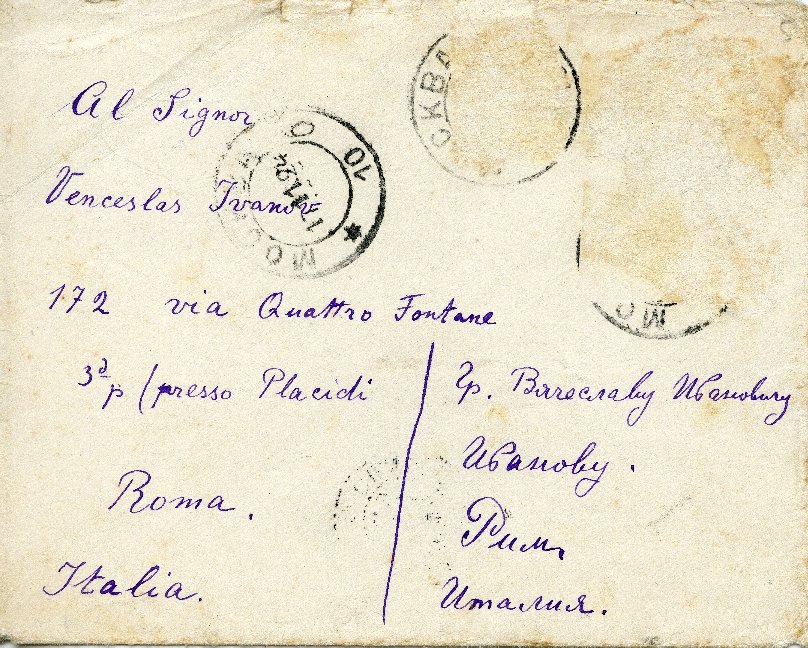 Al Signor
Venceslas Ivanov
172 via Quattro Fontane
3d p (presso Placidi
Roma.
Italia.
Гр. Вячеславу Ивановичу
Иванову.
Рим
Италия.
СКВА
МОСКВА
10
17 11 24
МО